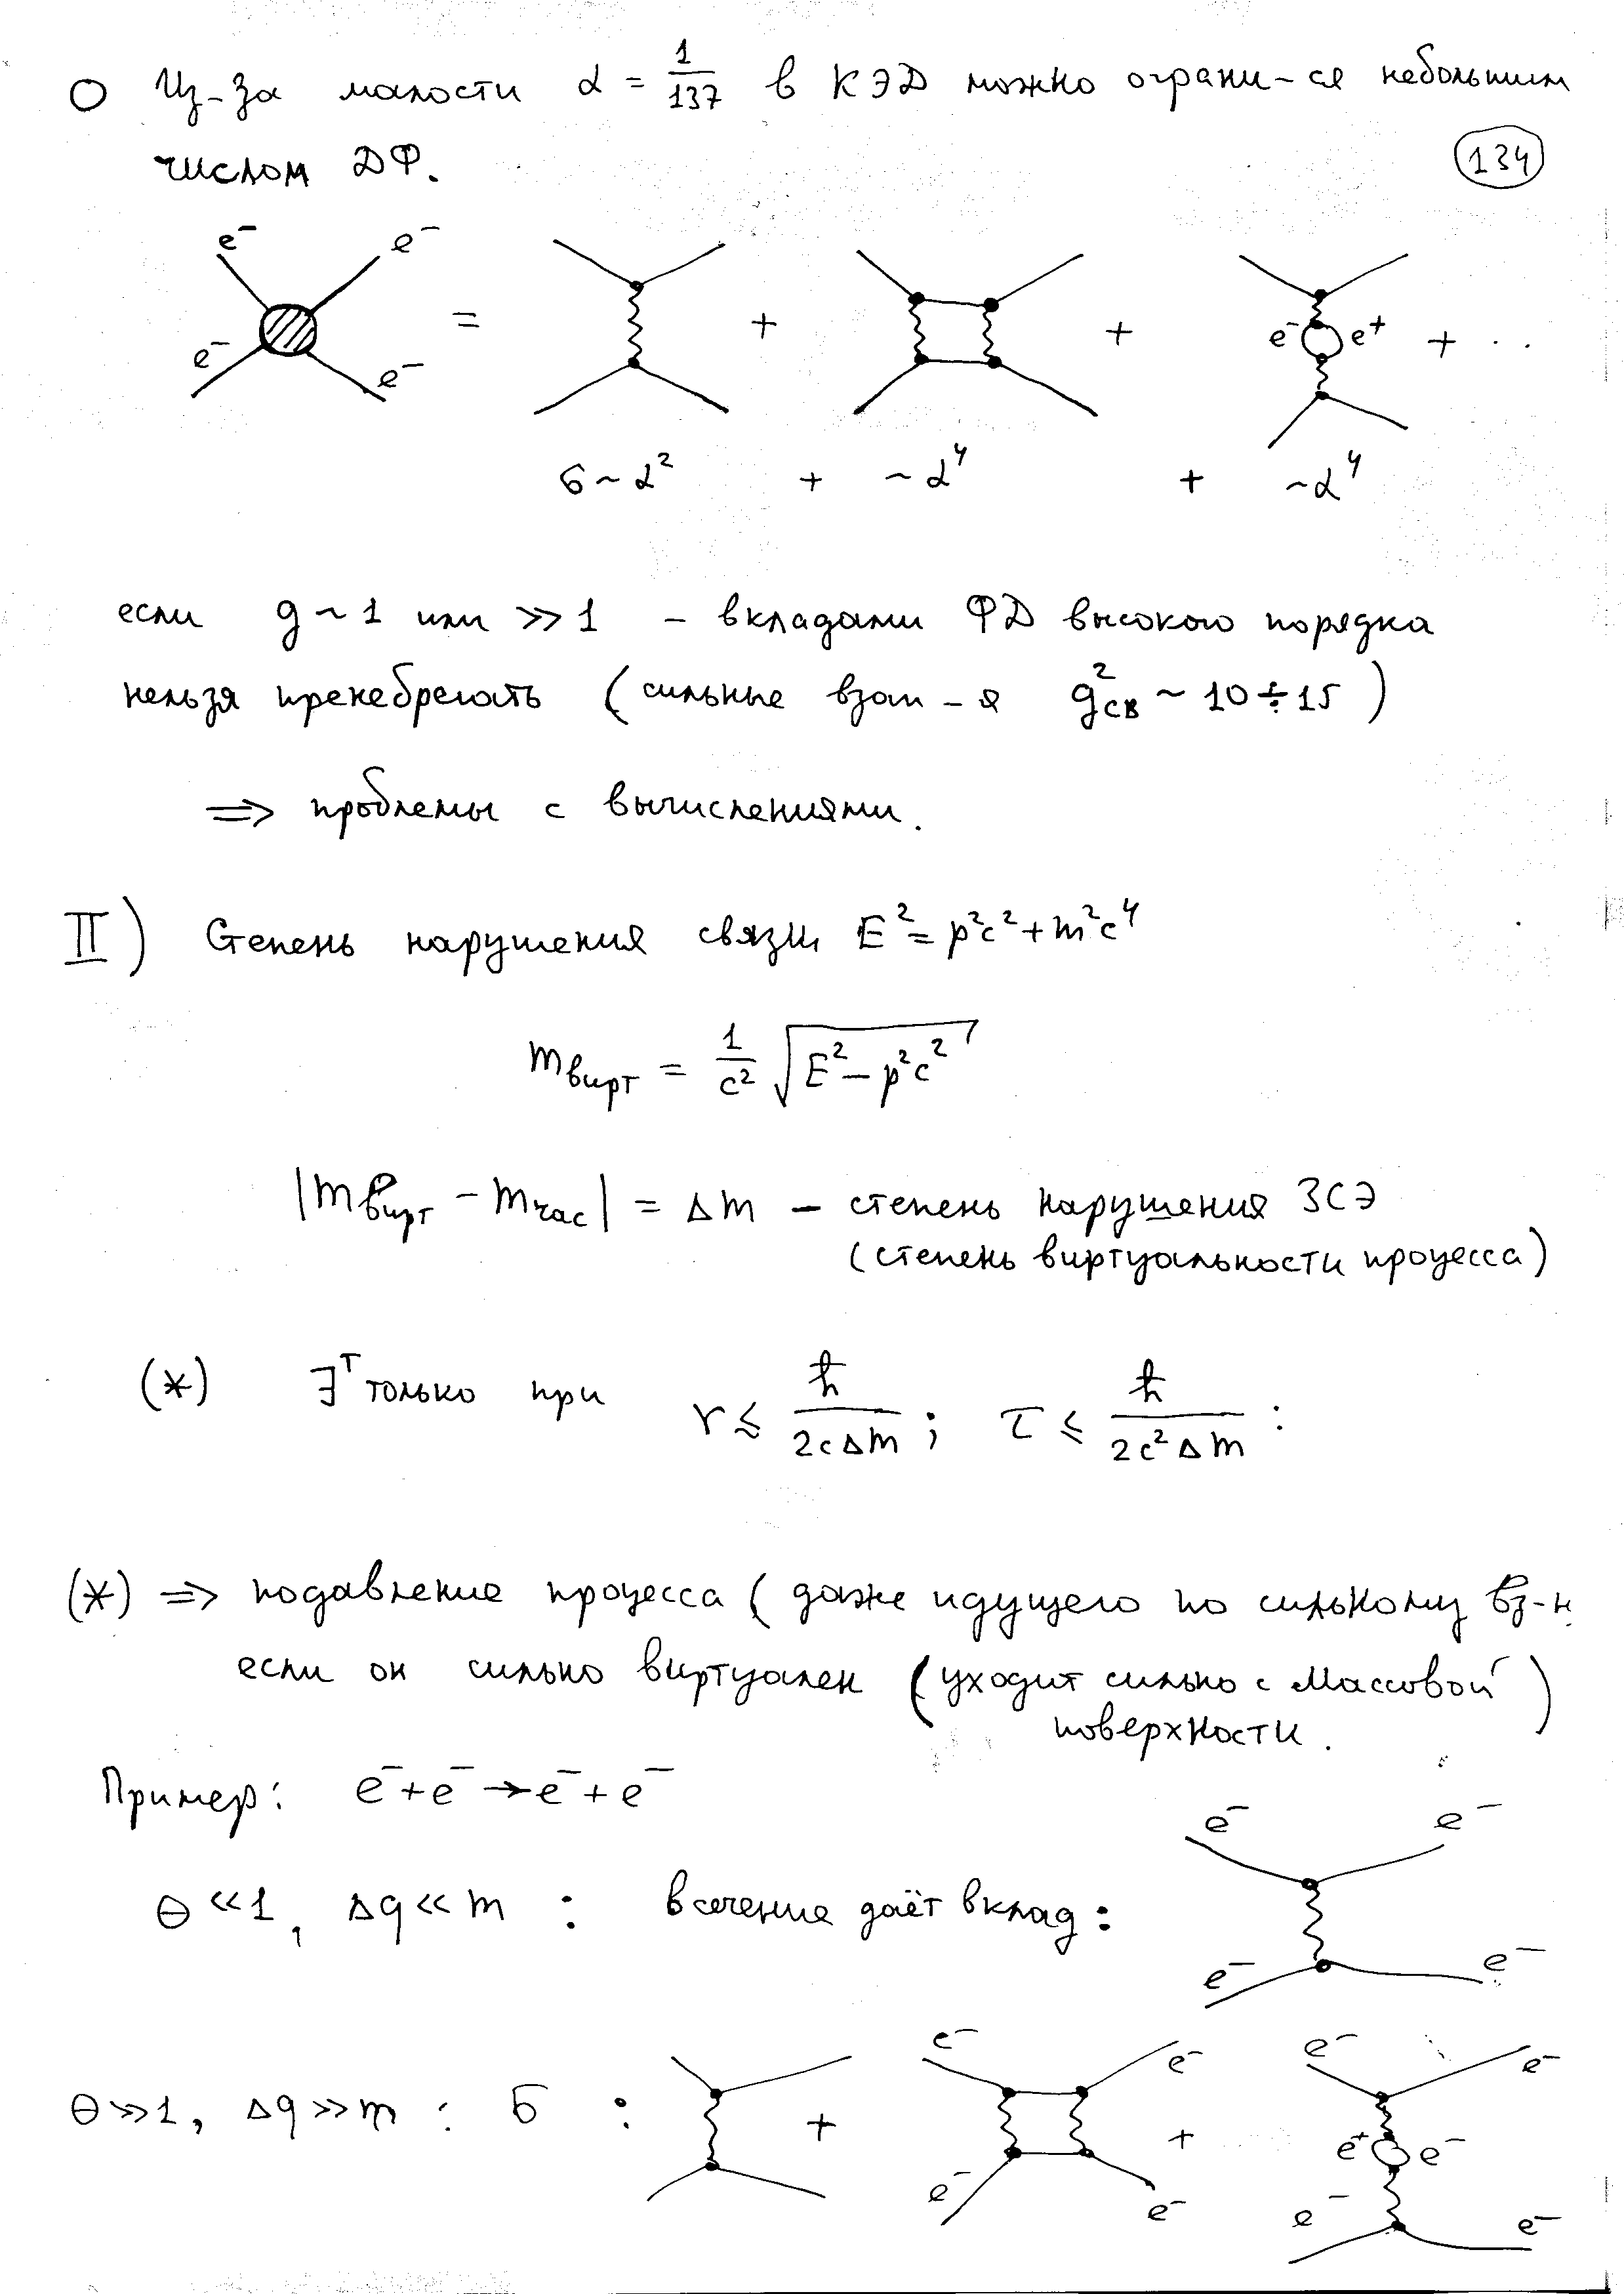 ○ Из-за малости α = 1/137 в КЭД можно ограни-ся небольшим
числом ДФ.
134
e⁻ e⁻
= + + e⁻ e⁺ + ..
e⁻ e⁻
σ ~ α² + ~ α⁴ + ~ α⁴
если g ~ 1 или ≫ 1 – вкладами ФД высокого порядка
нельзя пренебрегать (сильные взаи-я g²св ~ 10 ÷ 15)
⟹ проблемы с вычислениями.
II) Степень нарушения связи E² = p²c² + m²c⁴
mвирт = 1/c² √(E² – p²c²)
|mвирт – mчас| = Δm – степень нарушения ЗСЭ
(степень виртуальности процесса)
(*) ∃ᵀ только при r ≲ ħ/2cΔm ; τ ≤ ħ/2c²Δm :
(*) ⟹ подавление процесса (даже идущего по сильному вз-и
если он сильно виртуален (уходит сильно с массовой)
поверхности.
Пример: e⁻ + e⁻ → e⁻ + e⁻
e⁻ e⁻
θ ≪ 1, Δq ≪ m : в сечение даёт вклад:
e⁻ e⁻
e⁻ e⁻ e⁻ e⁻
θ ≫ 1, Δq ≫ m : σ : + + e⁺ e⁻
e⁻ e⁻ e⁻ e⁻